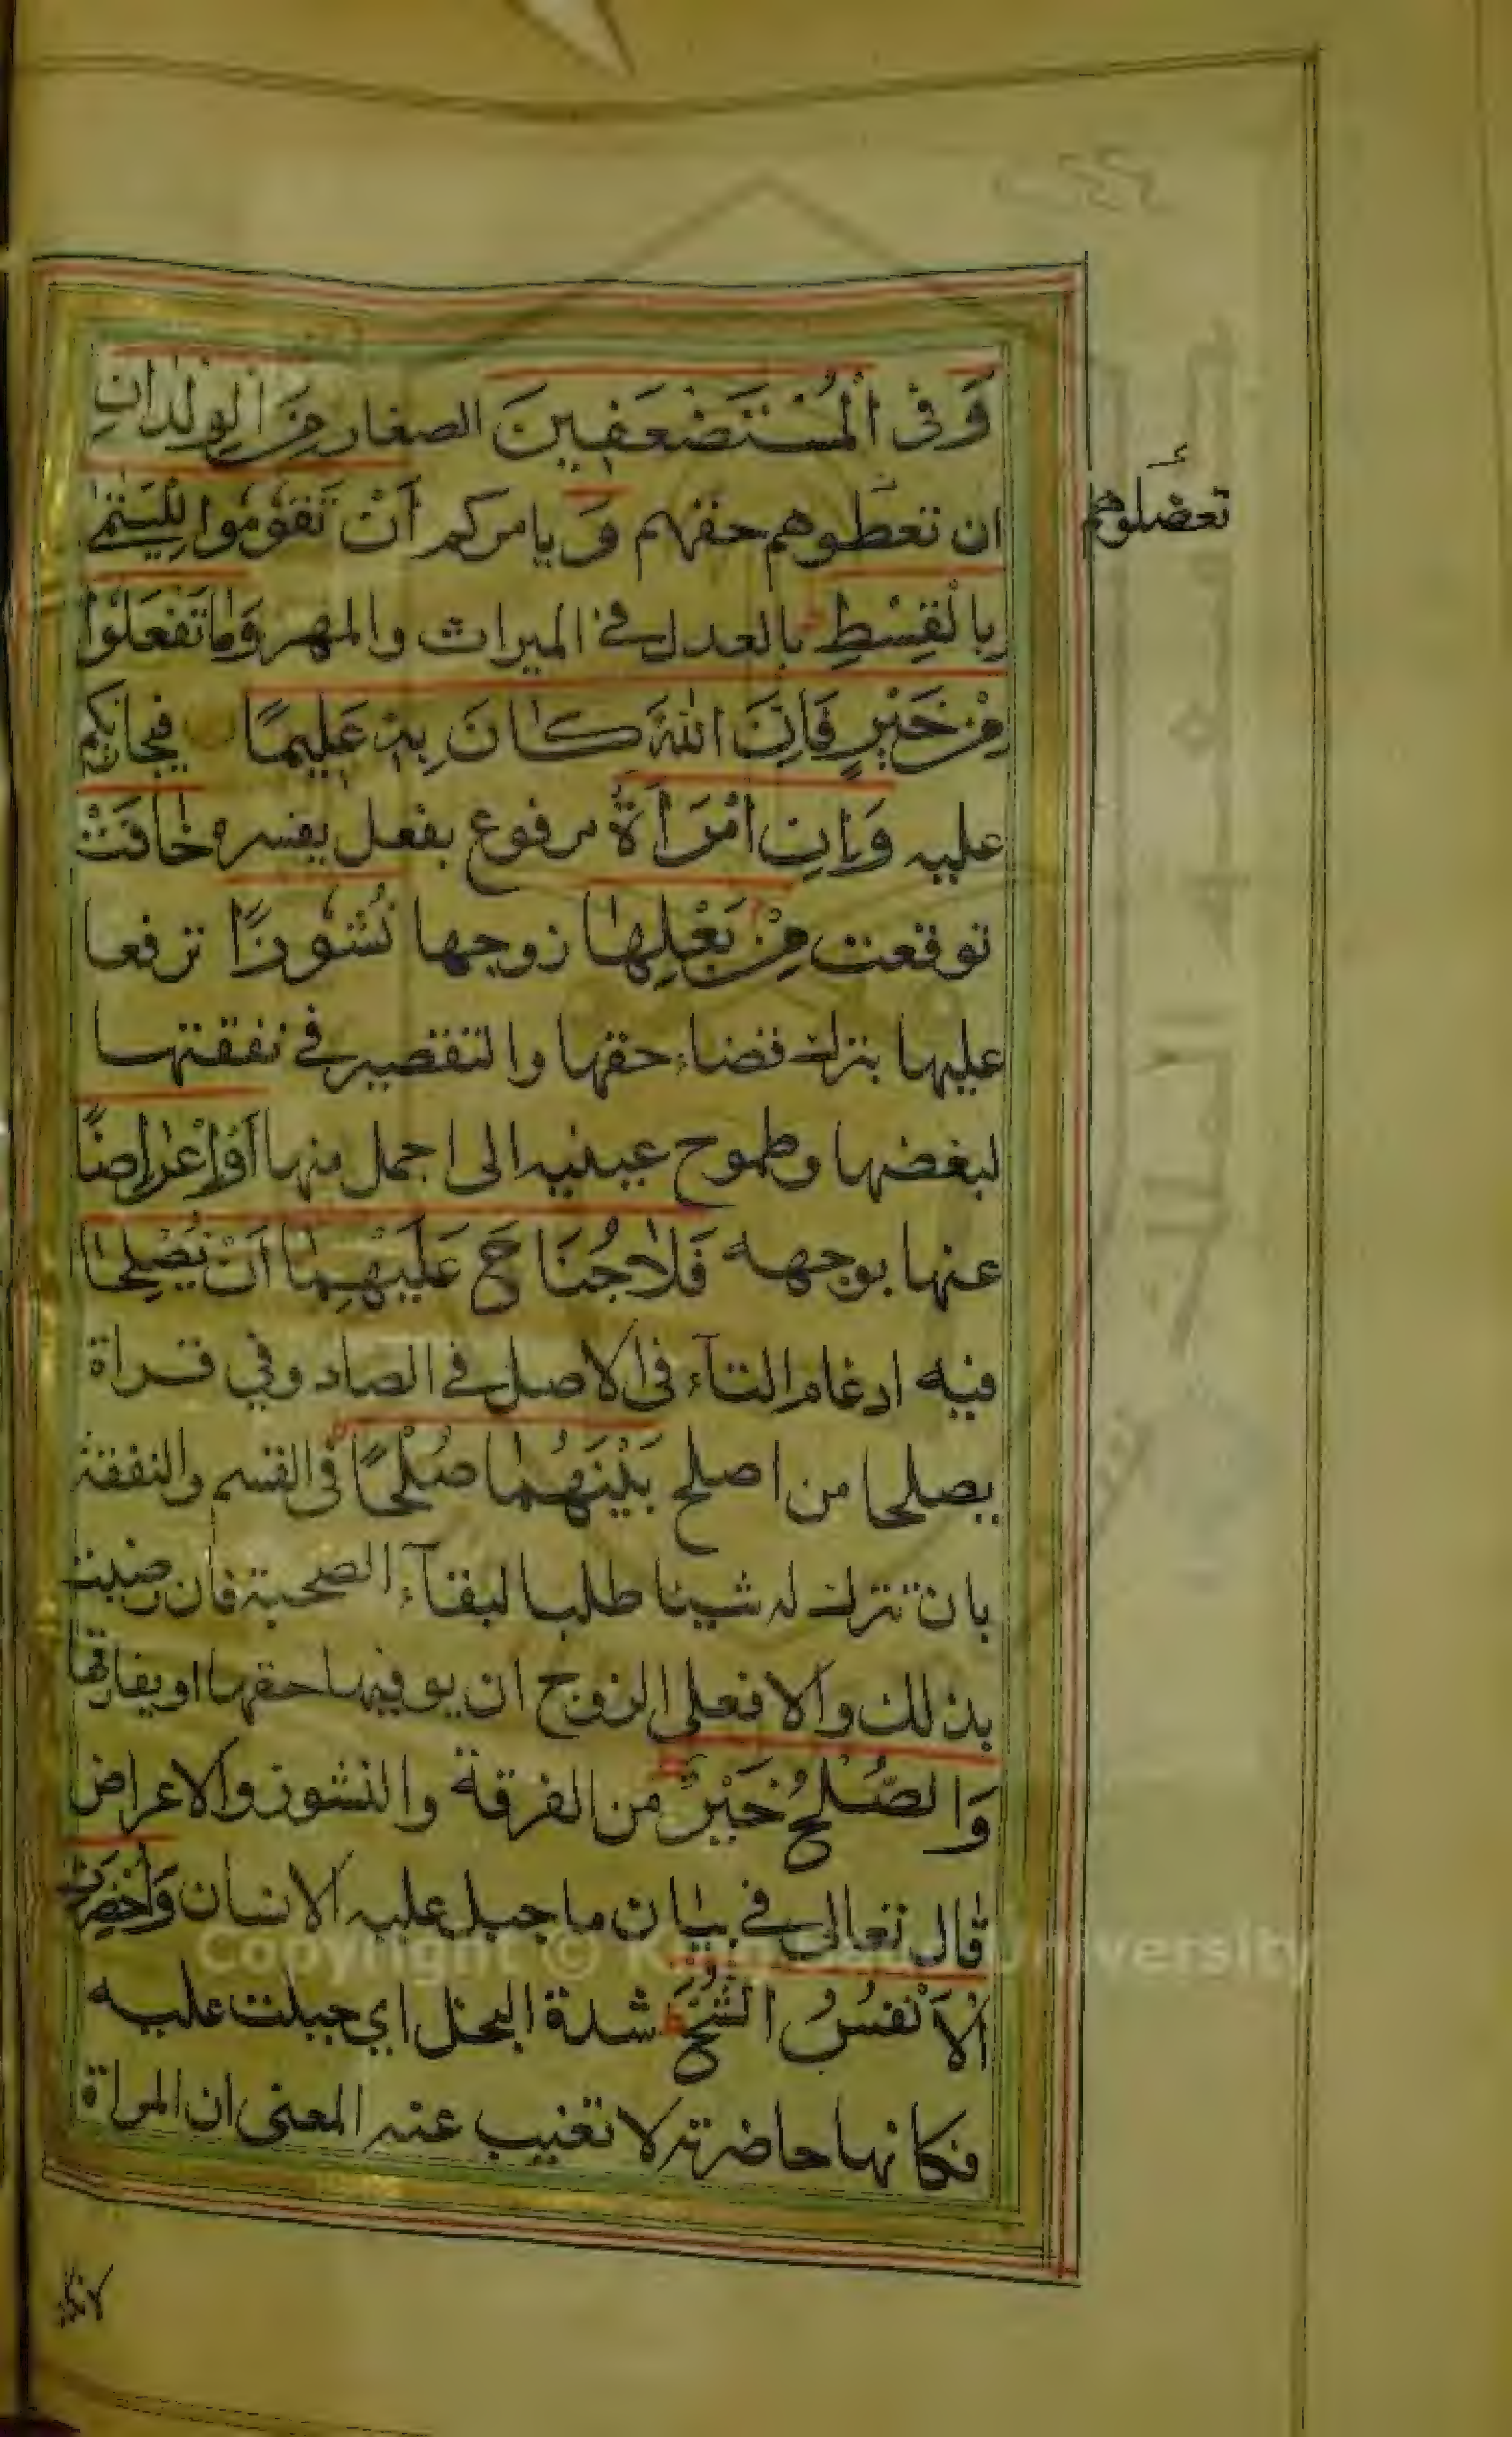 وَفِى الْمُسْتَضْعَفِينَ الصغار مِنَ الْوِلْدَانِ
ان تعطوهم حقهم وَ يامركم أَنْ تَقُومُوا لِلْيَتٰمٰى
بِالْقِسْطِ بالعدل في الميراث والمهر وَمَا تَفْعَلُوا
مِنْ خَيْرٍ فَاِنَّ اللهَ كَانَ بِهِ عَلِيمًا فيجازيكم
عليه وَاِنِ امْرَاَةٌ مرفوع بفعل يفسره خَافَتْ
توقعت مِنْ بَعْلِهَا زوجها نُشُوزًا ترفعا
عليها بترك قضاء حقها والتقصير في نفقتها
لبغضها وطموح عينيه الى اجمل منها اَوْ اِعْرَاضًا
عنها بوجهه فَلَا جُنَاحَ عَلَيْهِمَا اَنْ يُصْلِحَا
فيه ادغام التآء فى الاصل في الصاد وفي قراة
يصلحا من اصلح بَيْنَهُمَا صُلْحًا فى القسم والنفقة
بان تترك له شيئا طلبا لبقآء الصحبة فان رضيت
بذلك والا فعلى الزوج ان يوفيها حقها او يفارقها
وَالصُّلْحُ خَيْرٌ من الفرقة والنشوز والاعراض
قال تعالى في بيان ما جبل عليه الانسان وَاُحْضِرَتِ
الْاَنْفُسُ الشُّحَّ شدة البخل اي جبلت عليه
فكانها حاضرته لا تغيب عنه المعنى ان المراة
تعضلوهم
لاتكاد
Copyright © King Saud University